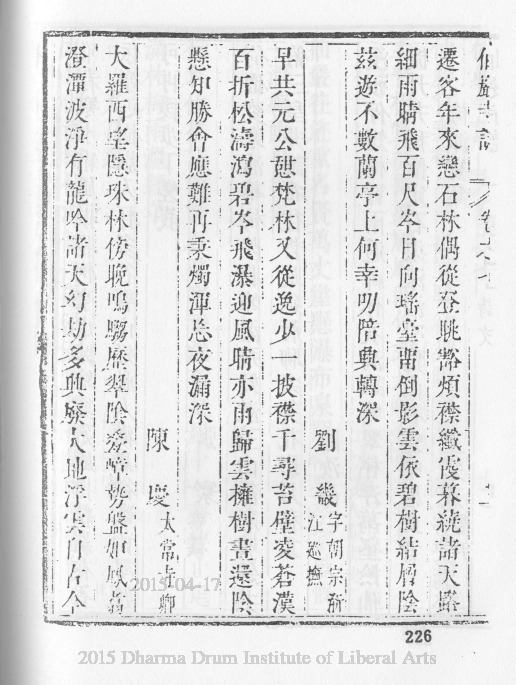 寺記
卷之
遷客年來戀石林偶從登眺豁煩襟纖霞暮繞諸天
細雨晴飛百尺岑日向瑤臺留倒影雲依碧樹結層陰
茲遊不數蘭亭上何幸叨陪興轉深
劉畿字朝宗浙江巡撫
早共元公憩梵林又從逸少一披襟千尋苔壁凌蒼漢
百折松濤瀉碧岑飛瀑迎風晴亦雨歸雲擁樹晝還陰
懸知勝會應難再秉燭渾忘夜漏深
陳慶太常寺卿
大羅西望隱珠林傍晚鳴騶歷翠陰嶂勢盤如鳳翥
澄潭波淨有龍吟諸天幻劫多興廢大地浮雲自古今
226
2015-04-17
2015 Dharma Drum Institute of Liberal Arts